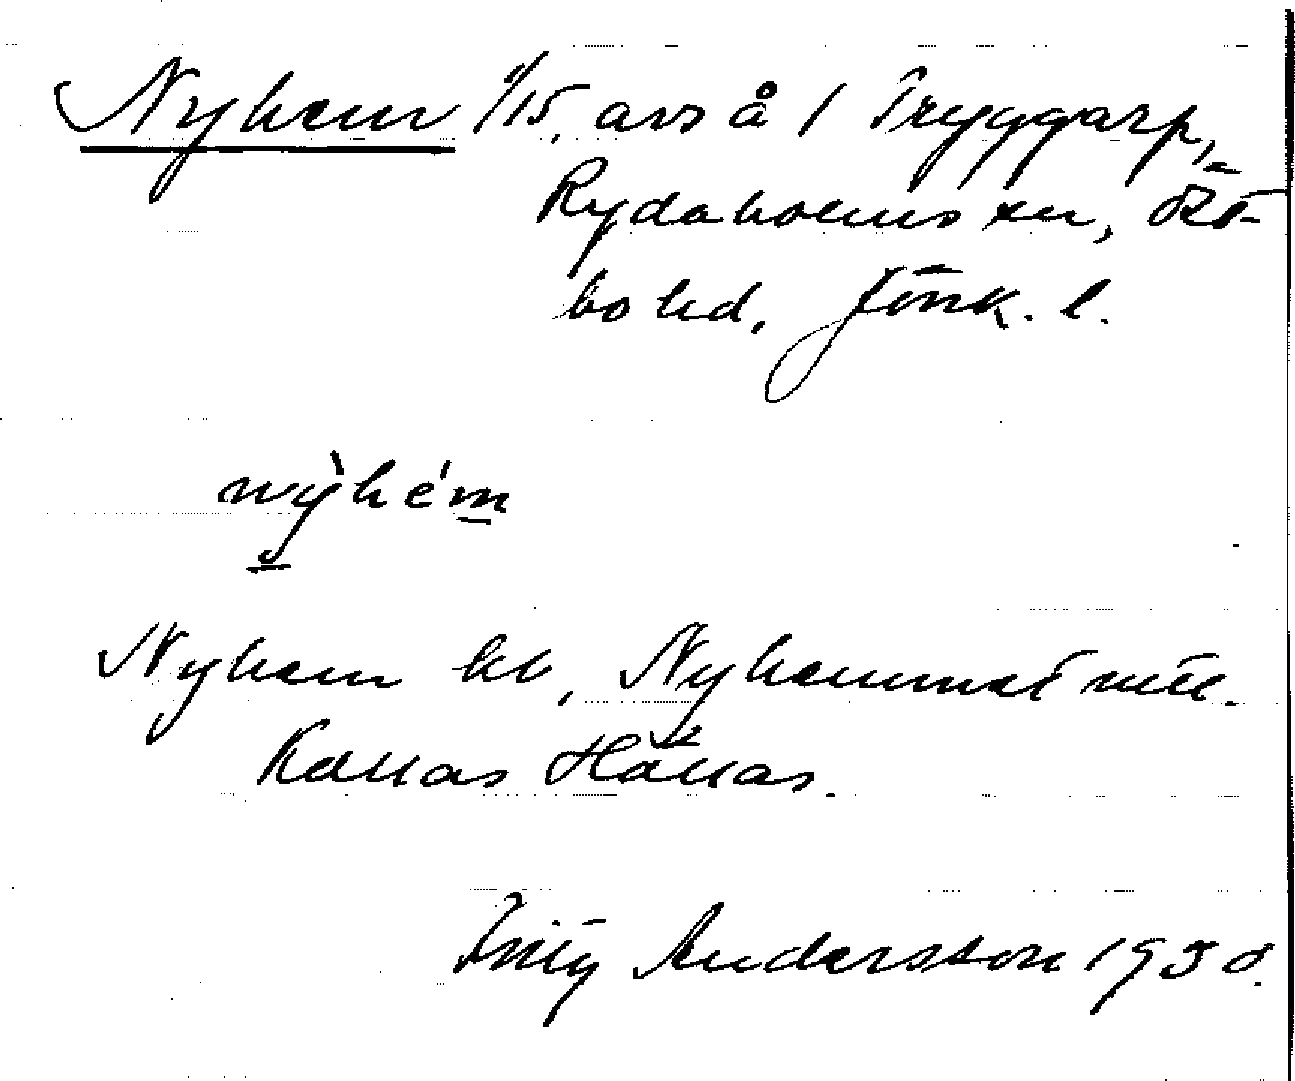 Nyhem 1/15, avs å 1 Tryggarp,
Rydaholms sn, Öst-
bo hd, Jönk. l.
nỳhém
Nyhem kb, Nyhemmet
Kallas Hällas.
Andersson 1930.